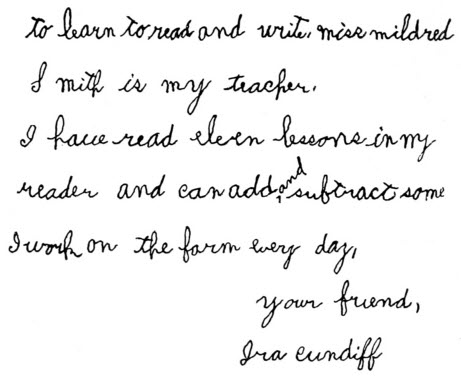 to learn to read and write. miss mildred
Smith is my teacher.
I have read eleven lessons in my
reader and can add, and subtract some
I work on the farm every day,
your friend,
Ira cundiff